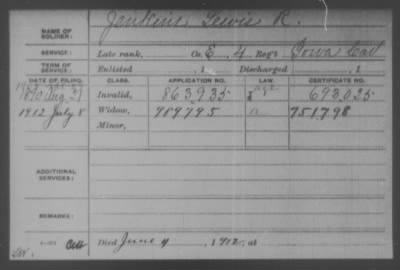 NAME OF SOLDIER: Jenkins, Lewis R.
SERVICE: Late rank, Co. E, 4 Reg't Iowa Cav
TERM OF SERVICE: Enlisted , 1 Discharged , 1
DATE OF FILING. CLASS. APPLICATION NO. LAW. CERTIFICATE NO.
1890 Aug Invalid, 863935 693025
1912 July 8 Widow, 989795 751798
Minor,
ADDITIONAL SERVICES:
REMARKS:
Died June 4, 1912, at